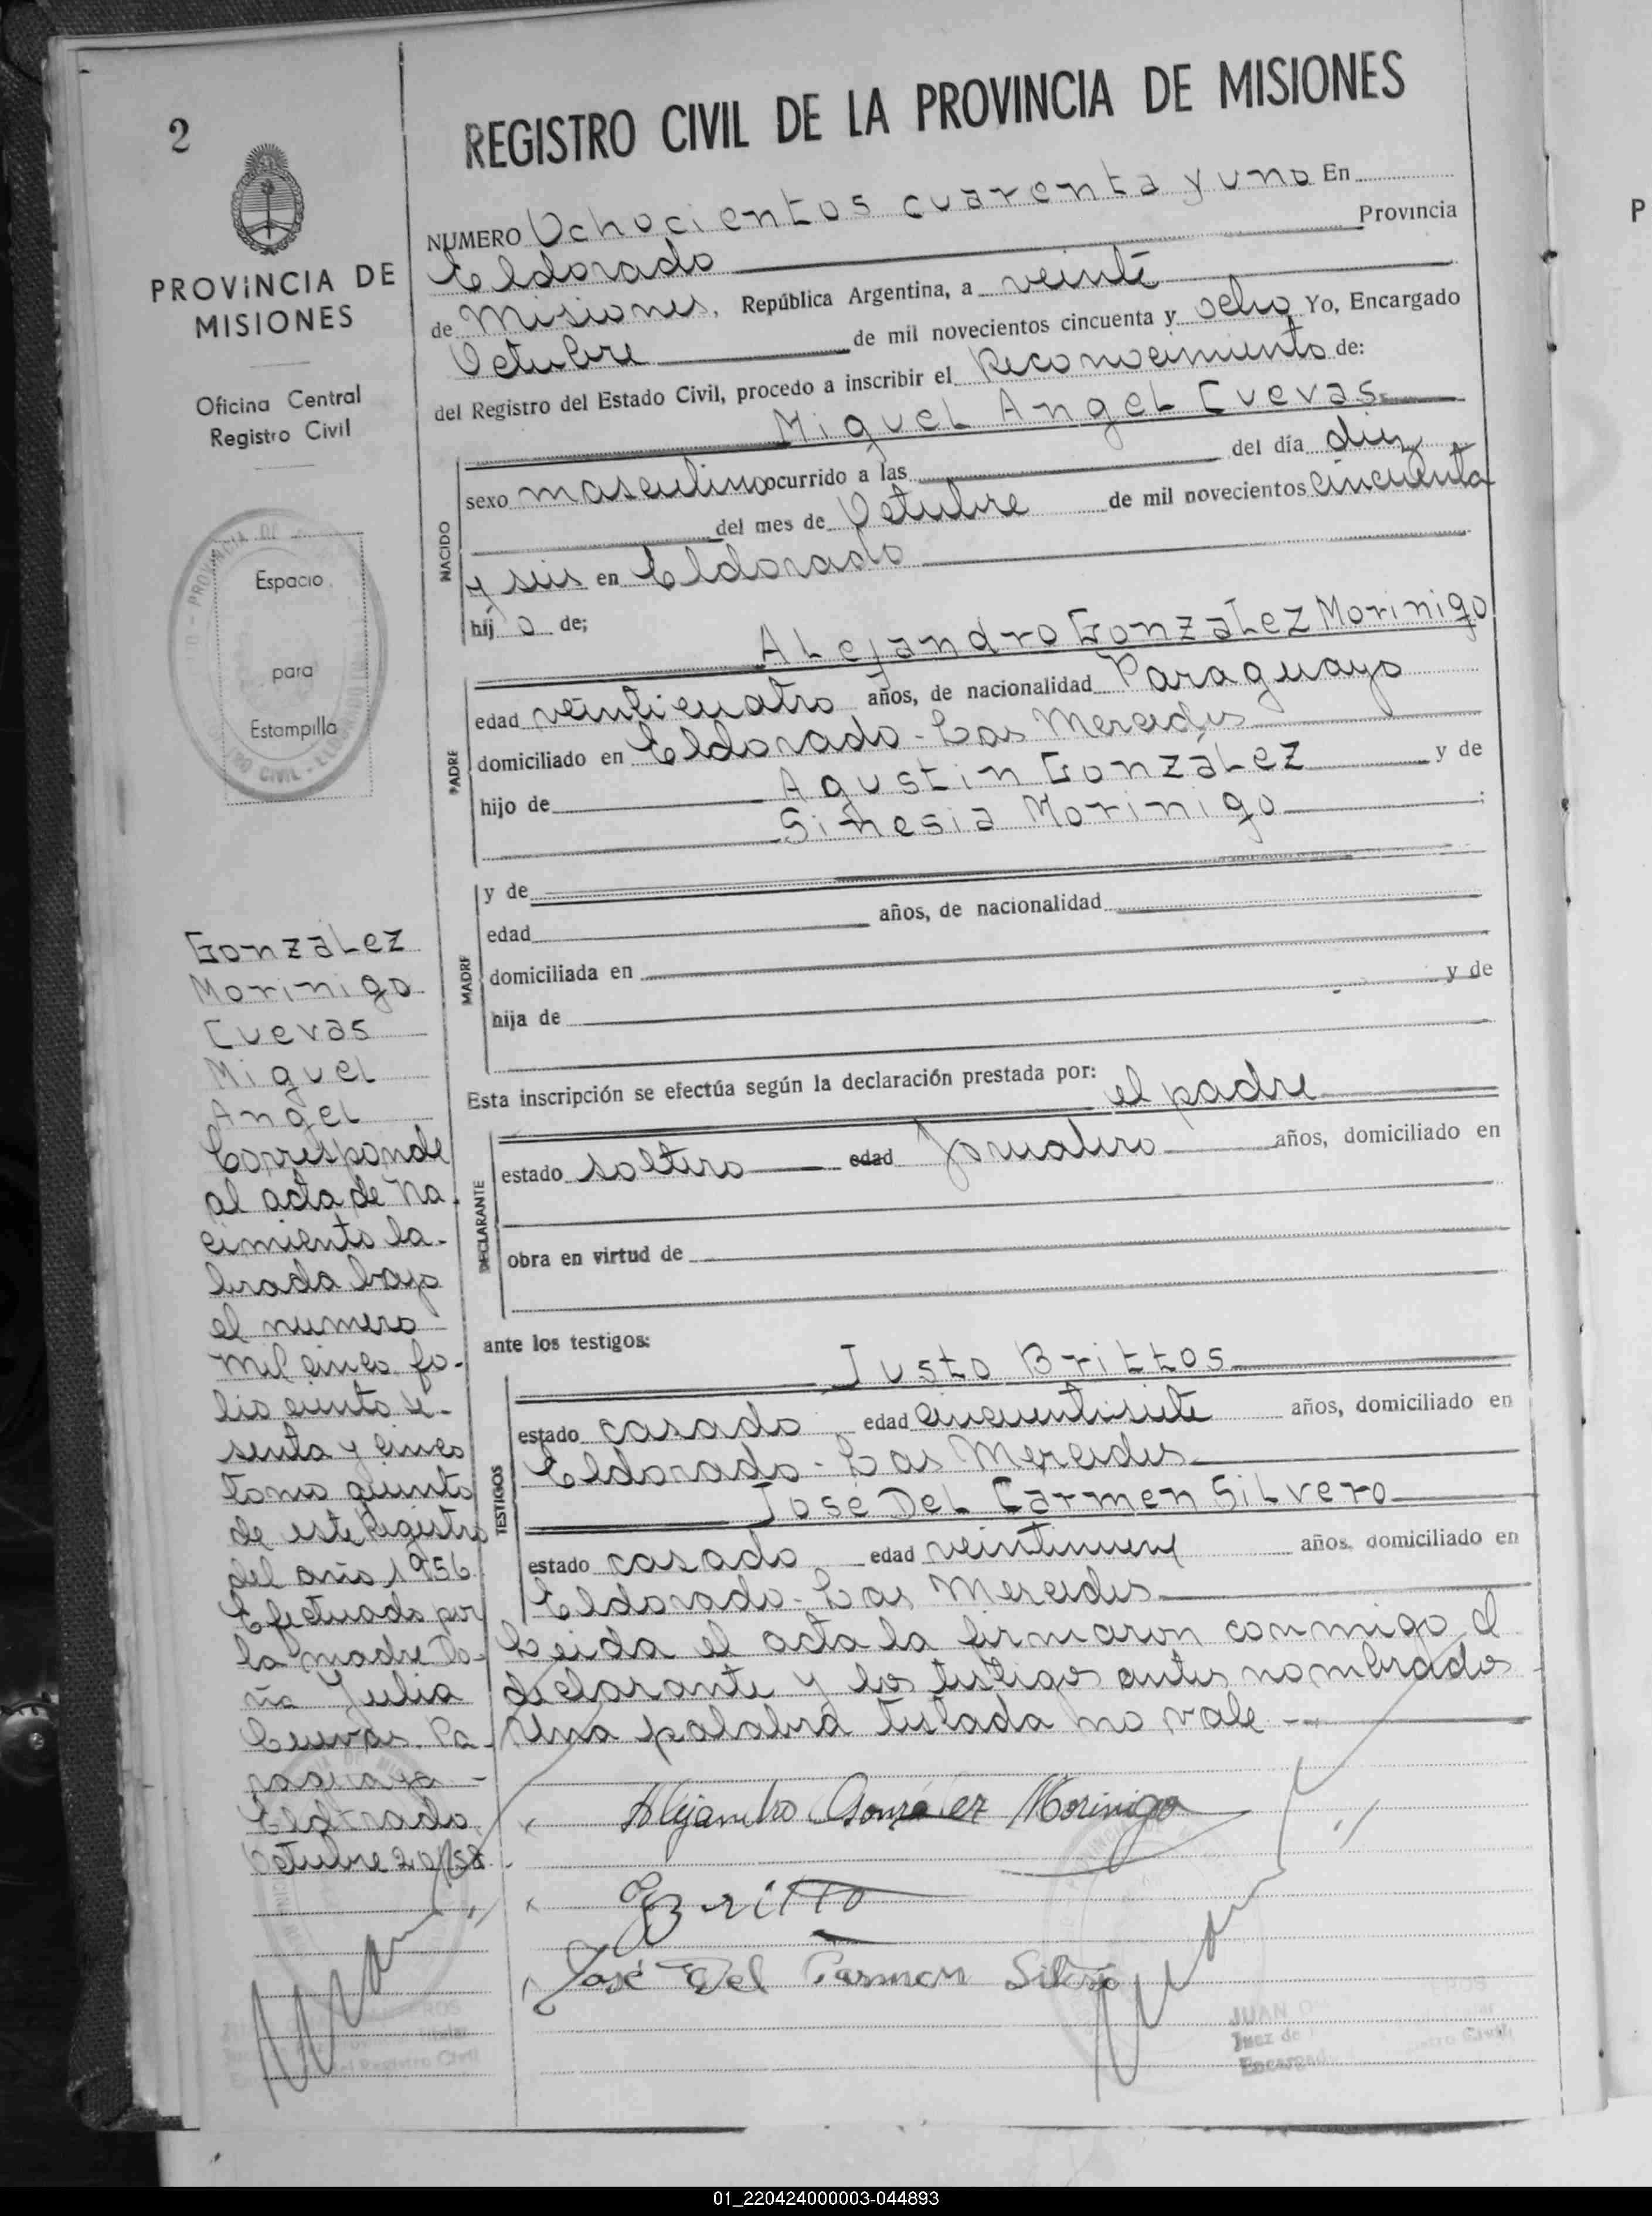 2
REGISTRO CIVIL DE LA PROVINCIA DE MISIONES
PROVINCIA DE
MISIONES
Oficina Central
Registro Civil
Espacio
para
Estampilla
NUMERO Ochocientos cuarenta y uno En
Eldorado Provincia
de Misiones, República Argentina, a veinte
Octubre de mil novecientos cincuenta y ocho Yo, Encargado
del Registro del Estado Civil, procedo a inscribir el Reconocimiento de:
Miguel Angel Cuevas
NACIDO
sexo masculino ocurrido a las del día diez
del mes de Octubre de mil novecientos cincuenta
y seis en Eldorado
hij o de;
Alejandro González Morinigo
PADRE
edad veinticuatro años, de nacionalidad Paraguayo
domiciliado en Eldorado - Las Mercedes
hijo de Agustin González y de
Sinesia Morinigo ;
MADRE
y de
edad años, de nacionalidad
domiciliada en
hija de y de
Esta inscripción se efectúa según la declaración prestada por:
el padre
DECLARANTE
estado soltero edad Jornalero años, domiciliado en
obra en virtud de
ante los testigos:
Justo Brittos
TESTIGOS
estado casado edad cincuentisiete años, domiciliado en
Eldorado - Las Mercedes
José Del Carmen Silvero
estado casado edad veintinueve años, domiciliado en
Eldorado - Las Mercedes
Leida el acta la firmaron conmigo el
declarante y los testigos antes nombrados
Una palabra testada no vale -
Alejandro González Morinigo
JBritto
José Del Carmen Silvero
González
Morinigo
Cuevas
Miguel
Angel
Corresponde
al acta de Na-
cimiento la-
brada bajo
el numero
mil cinco fo-
lio ciento se-
senta y cinco
tomo quinto
de este Registro
del año 1956
Efectuado por
la madre Do-
ña Julia
Cuevas. Pa-
raguaya -
Eldorado,
Octubre 20/58.
JUAN
Juez de
Encargado
del Registro Civil
P
01_220424000003-044893